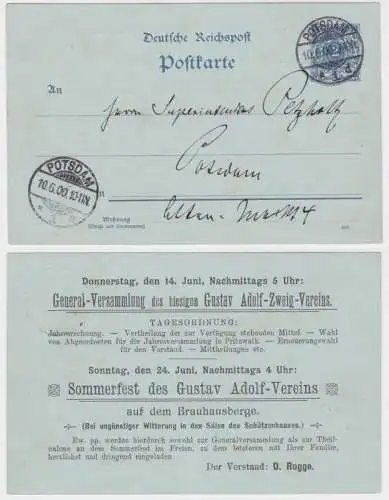 Deutsche Reichspost
Postkarte
POTSDAM
10.6.00.
An
Herrn Superintendent Petzholtz
Potsdam
POTSDAM
10.6.00.
in
Alten Markt 4
Wohnung
(Straße und Hausnummer)
Donnerstag, den 14. Juni, Nachmittags 5 Uhr:
General-Versammlung des hiesigen Gustav Adolf-Zweig-Vereins.
TAGESORDNUNG:
Jahresrechnung. — Vertheilung der zur Verfügung stehenden Mittel. — Wahl
von Abgeordneten für die Jahresversammlung in Pritzwalk. — Erneuerungswahl
für den Vorstand. — Mittheilungen etc.
Sonntag, den 24. Juni, Nachmittags 4 Uhr:
Sommerfest des Gustav Adolf-Vereins
auf dem Brauhausberge.
(Bei ungünstiger Witterung in den Sälen des Schützenhauses.)
Ew. pp. werden hierdurch sowohl zur Generalversammlung als zur Theil-
nahme an dem Sommerfest im Freien, zu dem letzteren mit Ihrer Familie,
herzlichst und dringend eingeladen
Der Vorstand: D. Rogge.